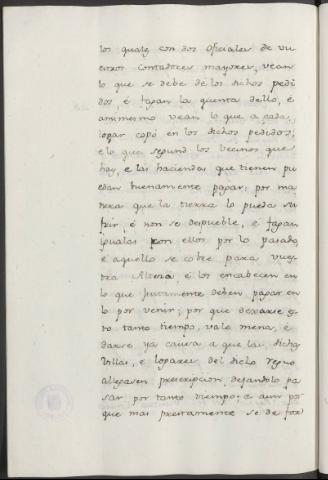 los quales con dos oficiales de vu
estros Contadores mayores, vean
lo que se debe de los dichos pedi
dos, é fagan la quenta dello, é
ansimesmo vean lo que a cada
logar copó en los dichos pedidos;
é lo que segund los Vecinos que
hay, e las haciendas que tienen pu
edan buenamente pagar; por ma
nera que la tierra lo pueda su
frir, é non se despueble, é fagan
igualas con ellos, por lo pasado,
é aquello se cobre para vues
tra Alteza, é los encabecen en
lo que justamente deben pagar en
lo por venir; por que dexarse es
to tanto tiempo, vale menos, é
darse ya causa a que las dichas
Villas, é logares del dicho regno
allegasen prescripcion, dejandolo pa
sar por tanto tiempo; é aun por
que mas prestamente se de for